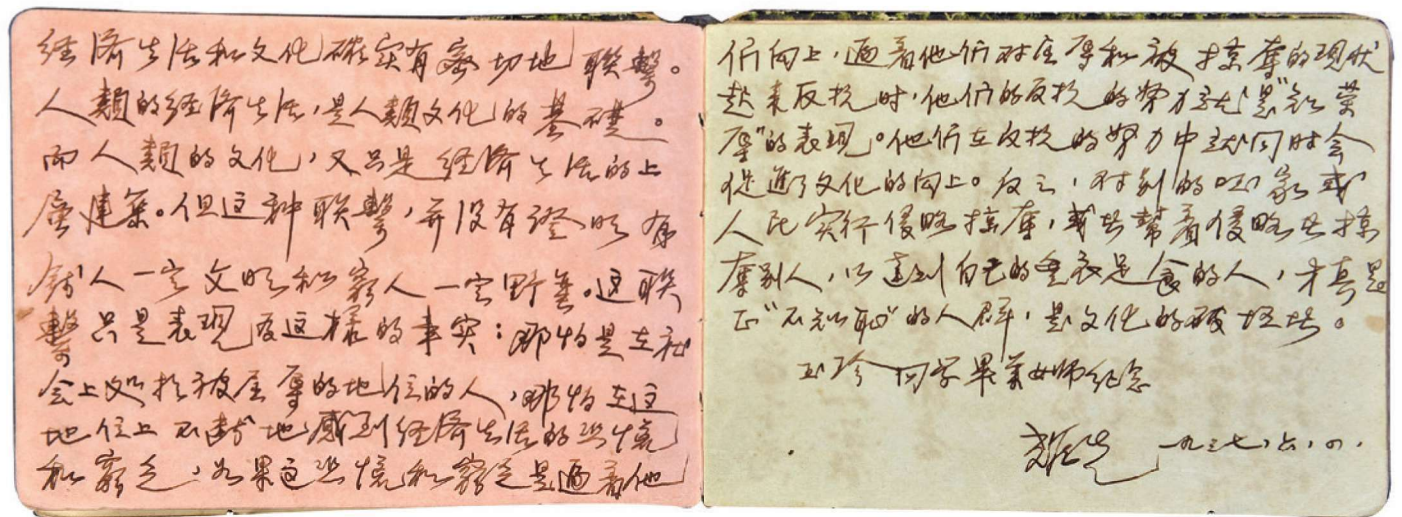 经济生活和文化确实有密切地联繫。
人類的经济生活，是人類文化的基礎。
而人類的文化，又只是经济生活的上
层建築。但这种联繫，并没有證明有
錢人一定文明和窮人一定野蛮。这联
繫只是表現在这樣的事实：哪怕是在社
会上处于被压辱的地位的人，哪怕在这
地位上不断地感到经济生活的恐慌
和窮乏，如果这恐慌和窮乏是逼着他
们向上，逼着他们对压辱和被掠奪的现状
起来反抗时，他们的反抗的努力就是“知荣
辱”的表现。他们在反抗的努力中就同时会
促進了文化的向上。反之，对别的国家或
人民实行侵略掠奪，或者幫着侵略者掠
奪别人，以達到自己的豊衣足食的人，才真是
正“不知恥”的人群，是文化的破坏者。
玉珍同学畢業女师纪念
一九三七，六，四．